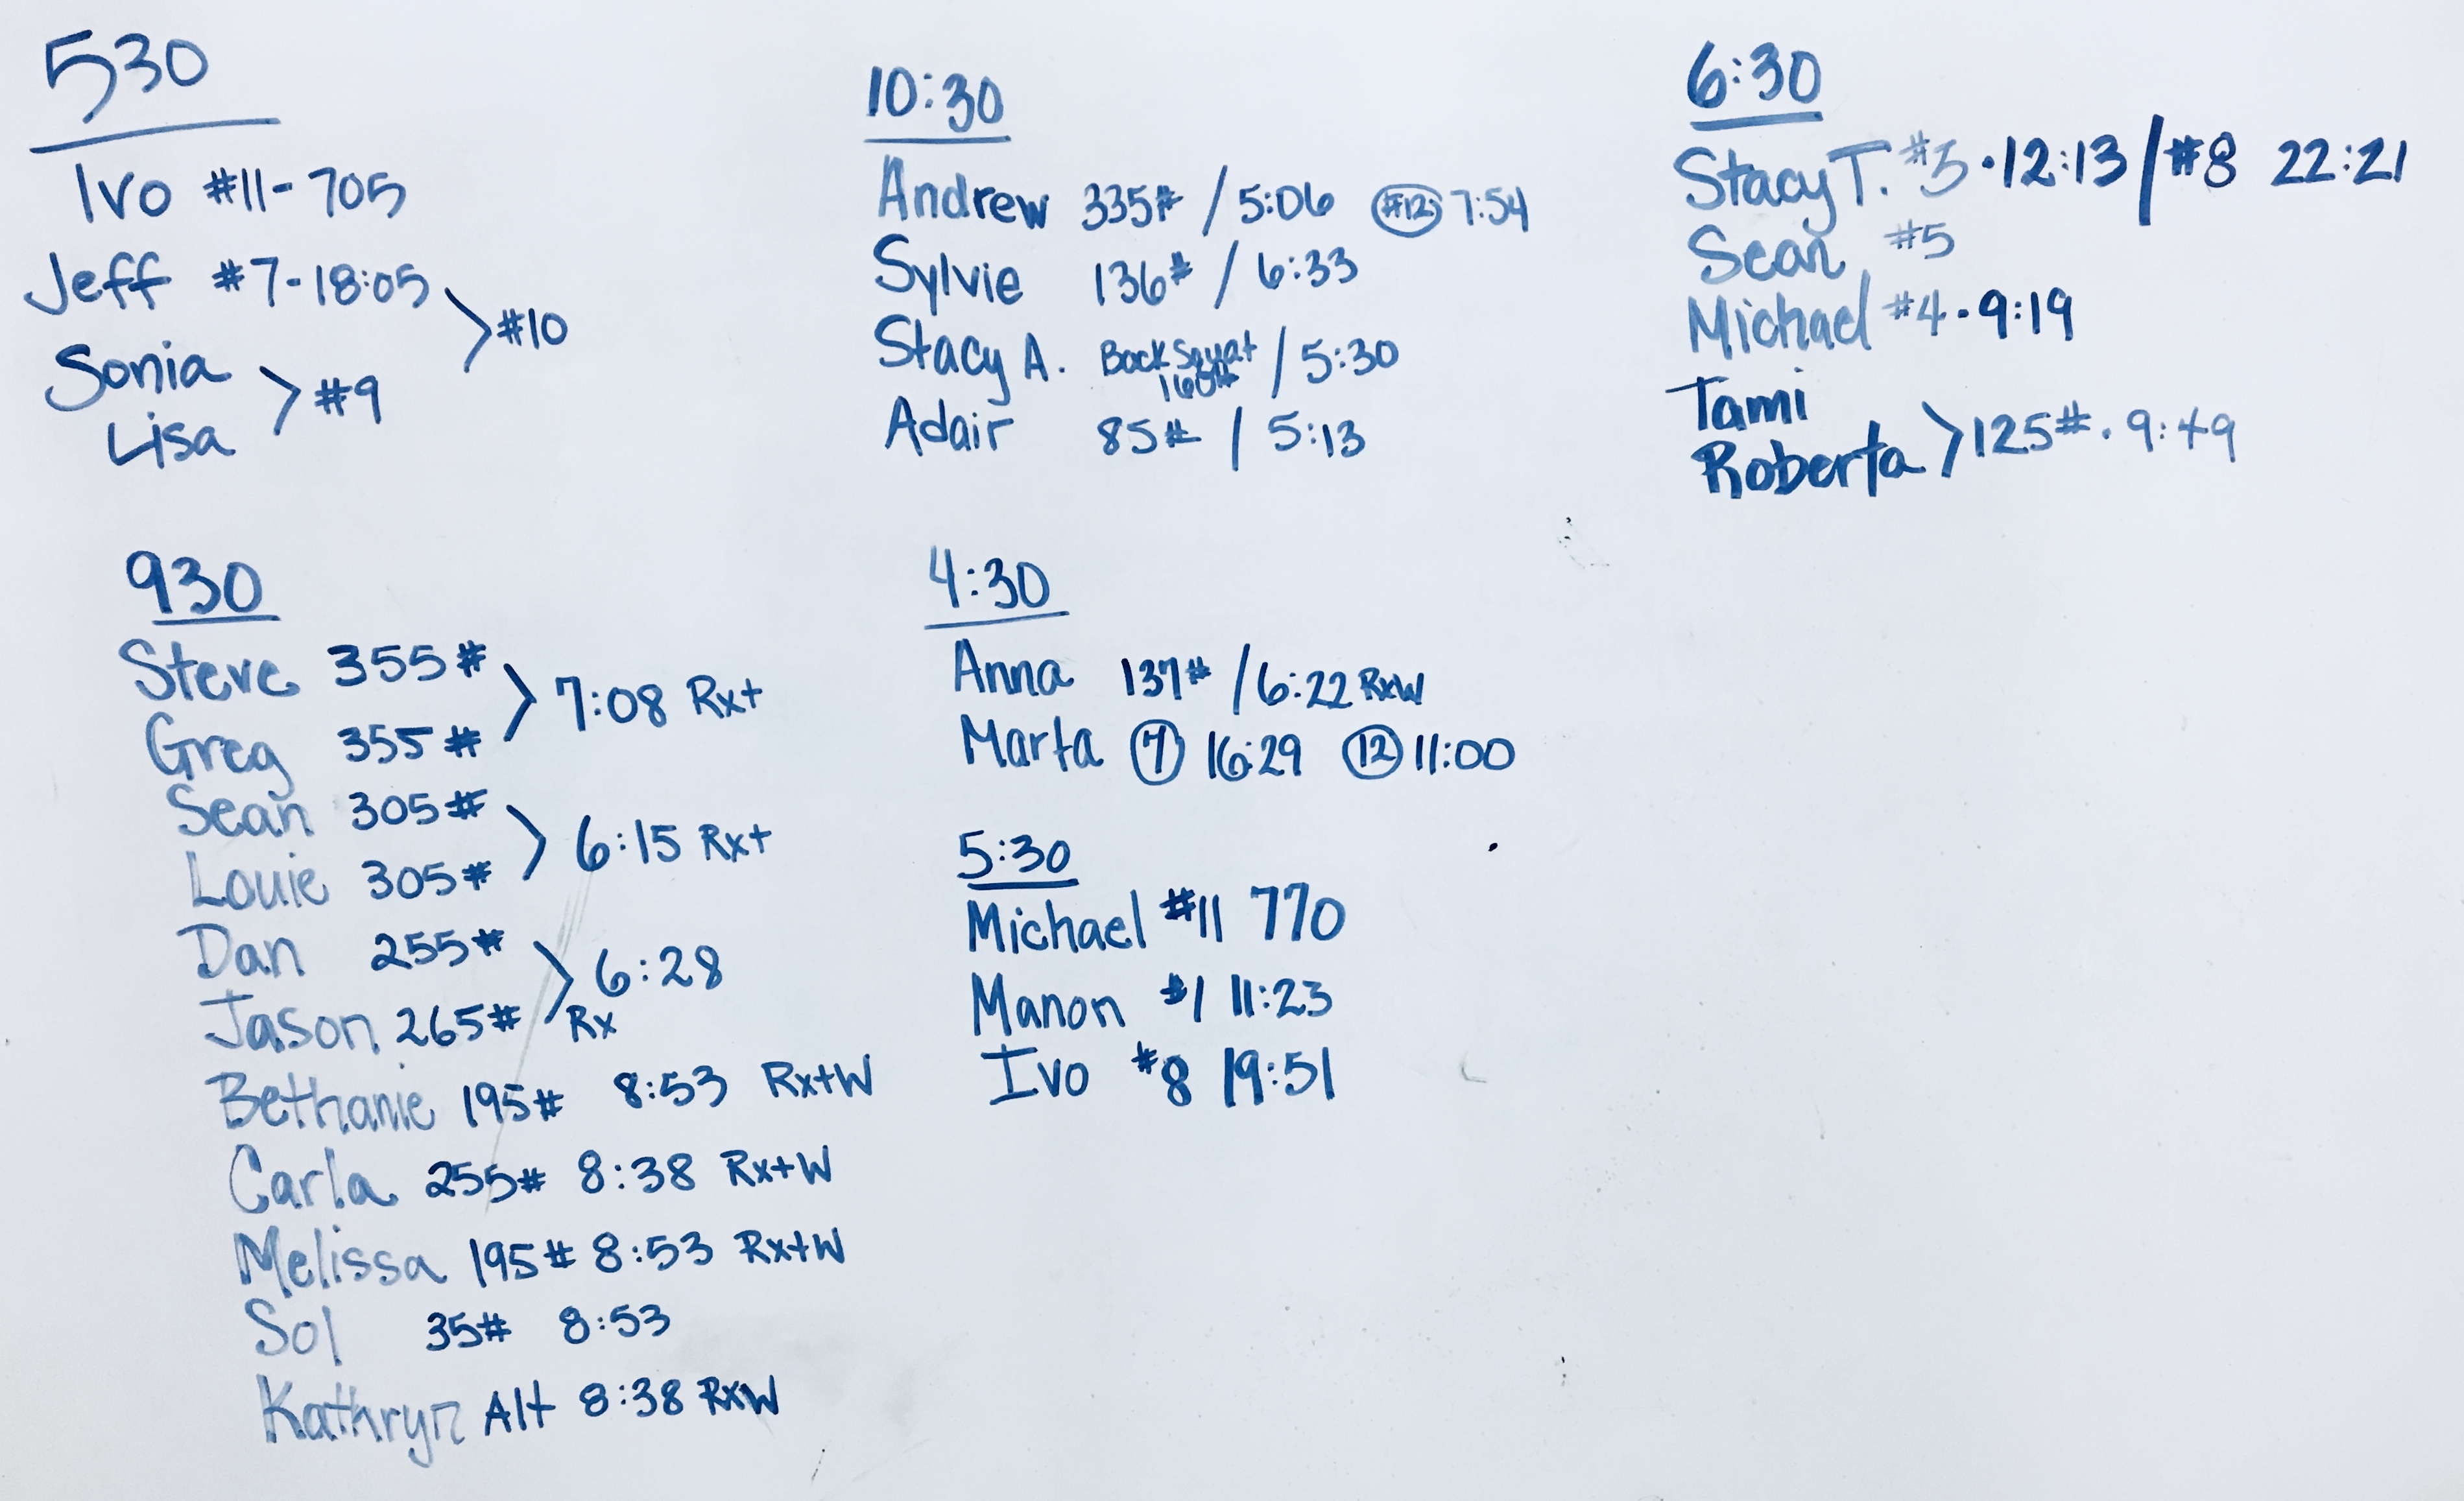 530
Ivo #11- 705
Jeff #7-18:05
>#10
Sonia
>#9
Lisa
930
Steve 355#
> 7:08 Rx+
Greg 355#
Sean 305#
> 6:15 Rx+
Louie 305#
Dan 255#
> 6:28
Jason 265# Rx
Bethanie 195# 8:53 Rx+W
Carla 255# 8:38 Rx+W
Melissa 195# 8:53 Rx+W
Sol 35# 8:53
Kathryn Alt 8:38 RxW
10:30
Andrew 335# / 5:06 #12 7:54
Sylvie 136# / 6:33
Stacy A. Back Squat / 5:30
160#
Adair 85# / 5:13
4:30
Anna 137# / 6:22 RxW
Marta 7 16:29 12 11:00
5:30
Michael #11 770
Manon #1 11:23
Ivo #8 19:51
6:30
Stacy T. #5 · 12:13 / #8 22:21
Sean #5
Michael #4 · 9:19
Tami
> 125# · 9:49
Roberta